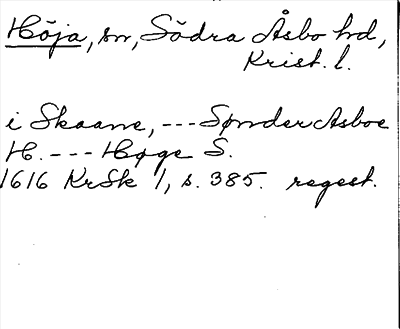 Höja, sn, Södra Åsbo hd,
Krist. l.
i Skaane, --- Sønder Asboe
H. --- Høge S.
1616 KrSk 1, s. 385. regest.